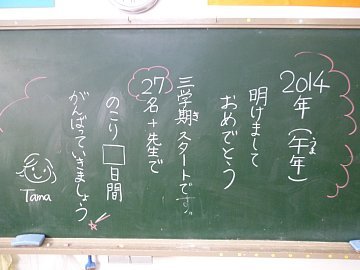 2014年(午年)
うま
明けまして
おめでとう
三学期スタートです。
き
27名+先生で
のこり□日間
がんばっていきましょう
Tama